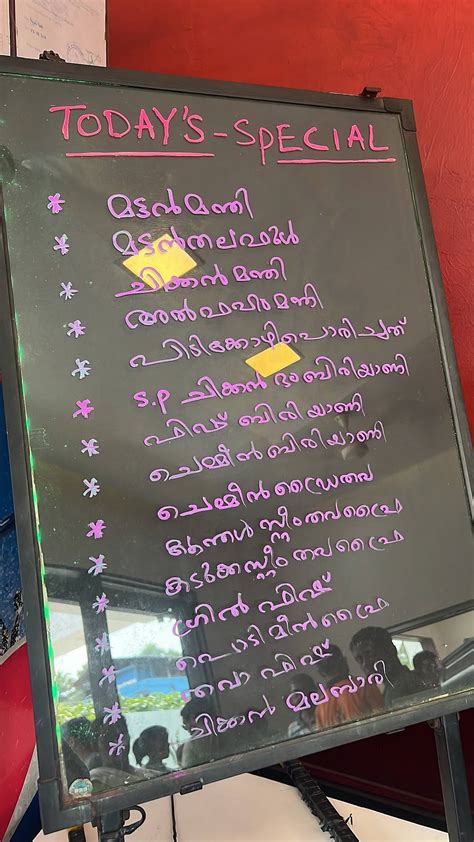 TODAY'S - SpECIAL
* മട്ടൻ മന്തി
* മട്ടൻ തലഫുൾ
* ചിക്കൻ മന്തി
* അൽഫഹം മന്തി
* പിടിക്കോഴി പൊരിച്ചത്
* S.P ചിക്കൻ ദം ബിരിയാണി
* ഫിഷ് ബിരിയാണി
* ചെമ്മീൻ ബിരിയാണി
* ചെമ്മീൻ ഡ്രൈതവ
* സ്റ്റീം തവഫ്രൈ
* കടുക്ക സ്റ്റീം തവ ഫ്രൈ
* ഗ്രിൽ ഫിഷ്
* പൊടിമീൻ ഫ്രൈ
* തവാ ഫിഷ്
* ചിക്കൻ മലബാരി